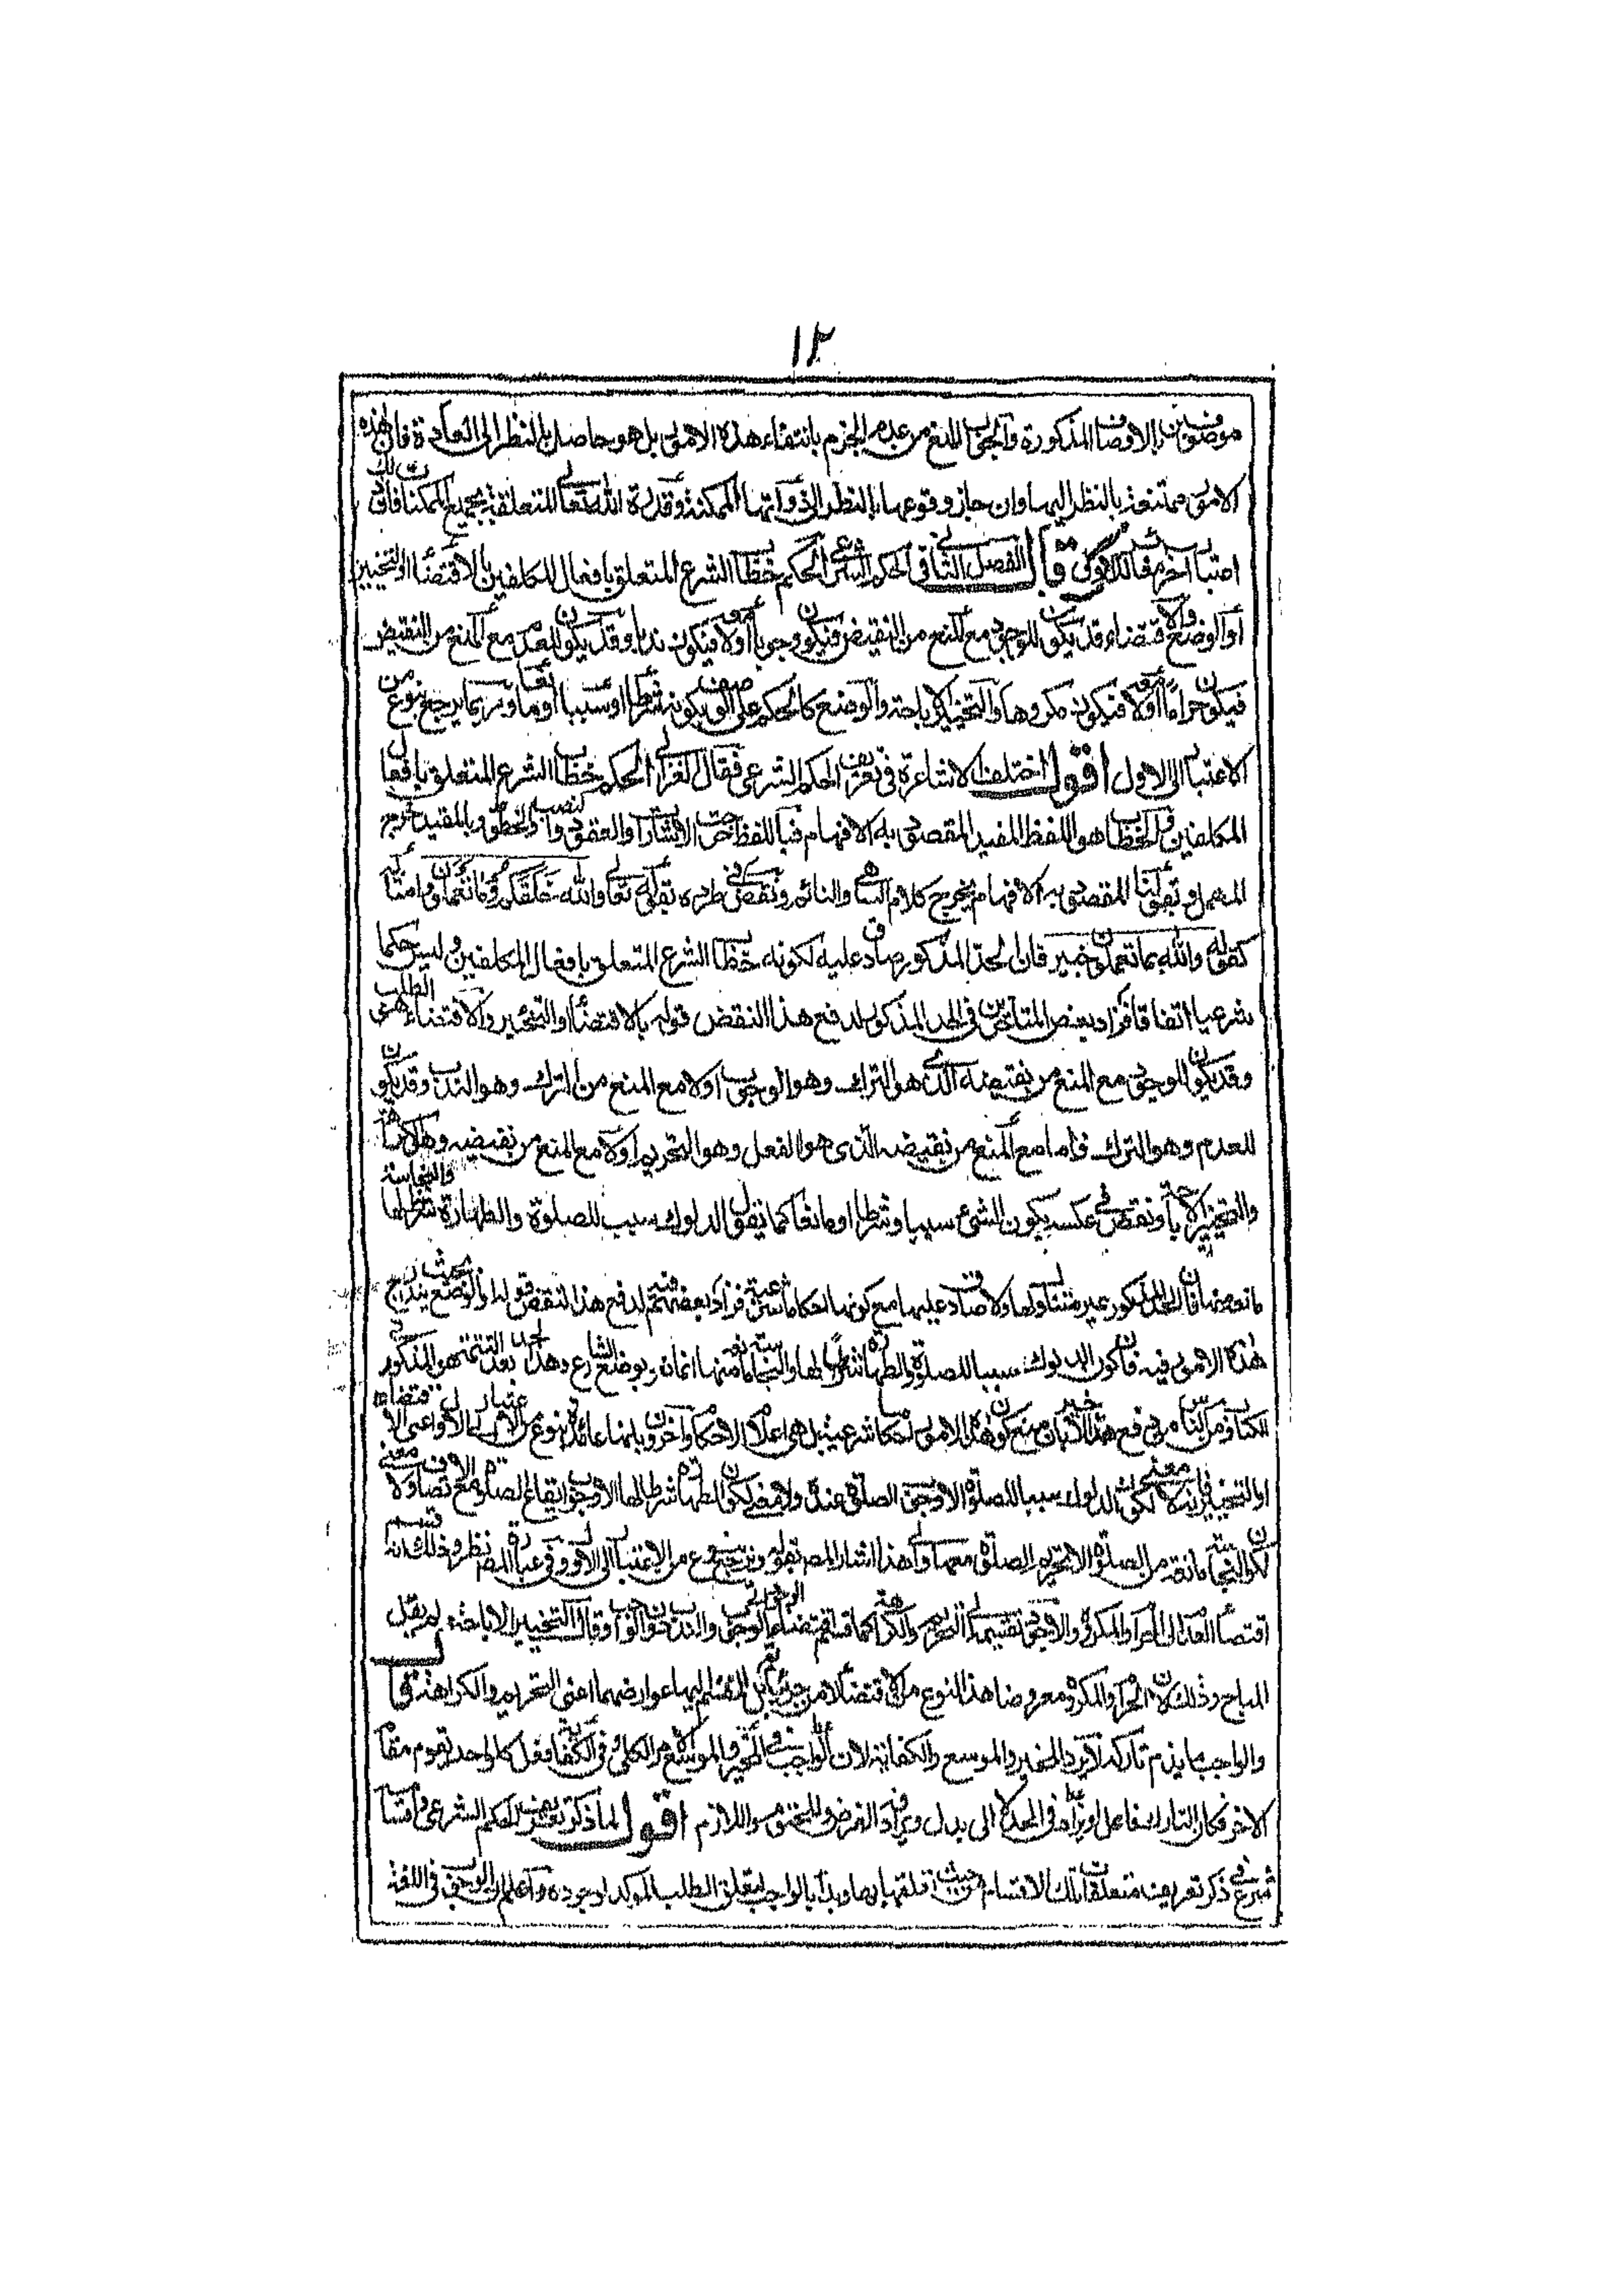 ١٢
موصوفين بالاوصاف المذكورة والجواب المنع من عدم الجزم بانتفاء هذه الامور بل هو حاصل بالنظر الى العادة فان هذه
الامور ممتنعة بالنظر اليها وان جاز وقوعها بالنظر الى ذواتها الممكنة وقدرة الله تعالى المتعلقة بجميع الممكنات فان ذلك
اعتبار اخر مغاير لذلك قال الفصل الثاني في الحكم الشرعي الحكم خطاب الشرع المتعلق بافعال المكلفين بالاقتضاء او التخيير
او الوضع والاقتضاء قد يكون للوجود مع المنع من النقيض فيكون وجوبا أو لا معه فيكون ندبا وقد يكون للعدم مع المنع من النقيض
فيكون حراما أو لا معه فيكون مكروها والتخيير الاباحة والوضع كالحكم على الوصف بكونه شرطا او سببا او مانعا وربما يرجع بنوع من
الاعتبار الى الاول اقول اختلف الاشاعرة في تعريف الحكم الشرعي فقال الغزالي الحكم خطاب الشرع المتعلق بافعال
المكلفين والخطاب هو اللفظ المفيد المقصود به الافهام فباللفظ خرجت الاشارات والعقود والنصب والخطوط وبالمفيد خرج
المهمل وبقولنا المقصود به الافهام يخرج كلام الساهي والنائم ونقض في طرده بقوله تعالى والله خلقكم وما تعملون وامثاله
كقوله والله بما تعملون خبير فان الحد المذكور صادق عليه لكونه خطاب الشرع المتعلق بافعال المكلفين وليس حكما
شرعيا اتفاقا فزاد بعض المتاخرين في الحد المذكور لدفع هذا النقض قوله بالاقتضاء او التخيير والاقتضاء هو الطلب
وقد يكون للوجود مع المنع من نقيضه الذي هو الترك وهو الوجوب اولا مع المنع من الترك وهو الندب وقد يكون
للعدم وهو الترك فاما مع المنع من نقيضه الذي هو الفعل وهو التحريم اولا مع المنع من نقيضه وهو الكراهة
والتخيير الاباحة ونقض في عكسه بكون الشيء سببا وشرطا او مانعا كما تقول الدلوك سبب للصلوة والطهارة شرط لها والنجاسة
مانعة منها فان الحد المذكور غير متناول لها ولا صادق عليها مع كونها احكاما شرعية فزاد بعضهم لدفع هذا النقض قوله او الوضع بحيث يندرج
هذه الامور فيه فان كون الدلوك سببا للصلوة والطهارة شرطا لها والنجاسة مانعة منها انما هو بوضع الشارع وهذا الحد بعد التتمة هو المذكور في
الكتاب ومن الناس من دفع هذا بان منع كون هذه الامور احكاما شرعية بل هي اعلام الاحكام واخرون بانها عائدة بنوع من الاعتبار الى الاول اعني الاقتضاء
او التخيير فانه لا معنى لكون الدلوك سببا للصلوة الا وجوب الصلوة عنده ولا معنى لكون الطهارة شرطا لها الا وجوب ايقاع الصلوة مع الاتصاف ولا معنى
لكون النجاسة مانعة من الصلوة الا تحريم الصلوة معها والى هذا اشار المصـ بقوله وربما يرجع بنوع من الاعتبار الى الاول وفي عبارة المصـ نظر وذلك لانه قسم
اقتضاء العدم الى الحرام والمكروه والاجود تقسيمه الى التحريم والكراهة كما قسم اقتضاء الوجود الى الوجوب والندب وقال التخيير الاباحة ولم يقل
المباح وذلك لان الحرام والمكروه معروضا هذا النوع من الاقتضاء لا من جزئياته بل المنقسم اليها عوارضهما اعني التحريم والكراهة قال
والواجب ما يذم تاركه لا يرد المخير والموسع والكفاية لان الواجب في المخير والموسع الكلي في الكفاية فعل كل واحد يقوم مقام
الاخر فكان التارك فاعلا ويزاد في الحد لا الى بدل ويرادفه الفرض والمحتوم واللازم اقول لما ذكر تعريف الحكم الشرعي واقسامه
شرع في ذكر تعريف متعلقات تلك الاقسام من حيث تعلقها بها وبدأ بالواجب لتعلق الطلب المؤكد بوجوده واعلم ان الوجوب في اللغة